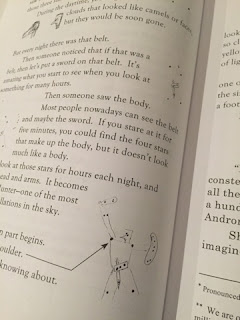 those three
During the daytime,
clouds that looked like camels or
but they would be soon gone.
But every night there was that belt.
Then someone noticed that if that was a
belt, then let's put a sword on that belt. It's
amazing what you start to see when you look at
something for many hours.
Then someone saw the body.
Most people nowadays can see the belt
and maybe the sword. If you stare at it for
five minutes, you could find the four stars
that make up the body, but it doesn't look
much like a body.
look at those stars for hours each night, and
ead and arms. It becomes
unter—one of the most
ellations in the sky.
n part begins.
oulder.
knowing about.
so cl
yello
of lig
one o
the si
a foot
"
conste
all the
a hund
Androm
Sh
imagin
* Pronounced
** We are o
mill